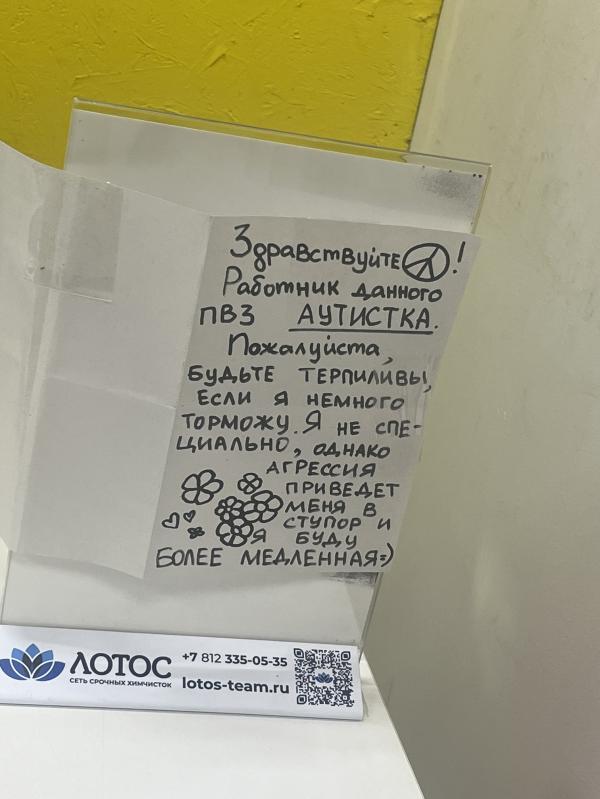 Здравствуйте !
Работник данного
ПВЗ АУТИСТКА.
Пожалуйста,
БУДЬТЕ ТЕРПИЛИВЫ,
ЕСЛИ Я НЕМНОГО
ТОРМОЖУ. Я НЕ СПЕ-
ЦИАЛЬНО, ОДНАКО
АГРЕССИЯ
ПРИВЕДЕТ
МЕНЯ В
СТУПОР И
Я БУДУ
БОЛЕЕ МЕДЛЕННАЯ=)
ЛОТОС
СЕТЬ СРОЧНЫХ ХИМЧИСТОК
+7 812 335-05-35
lotos-team.ru